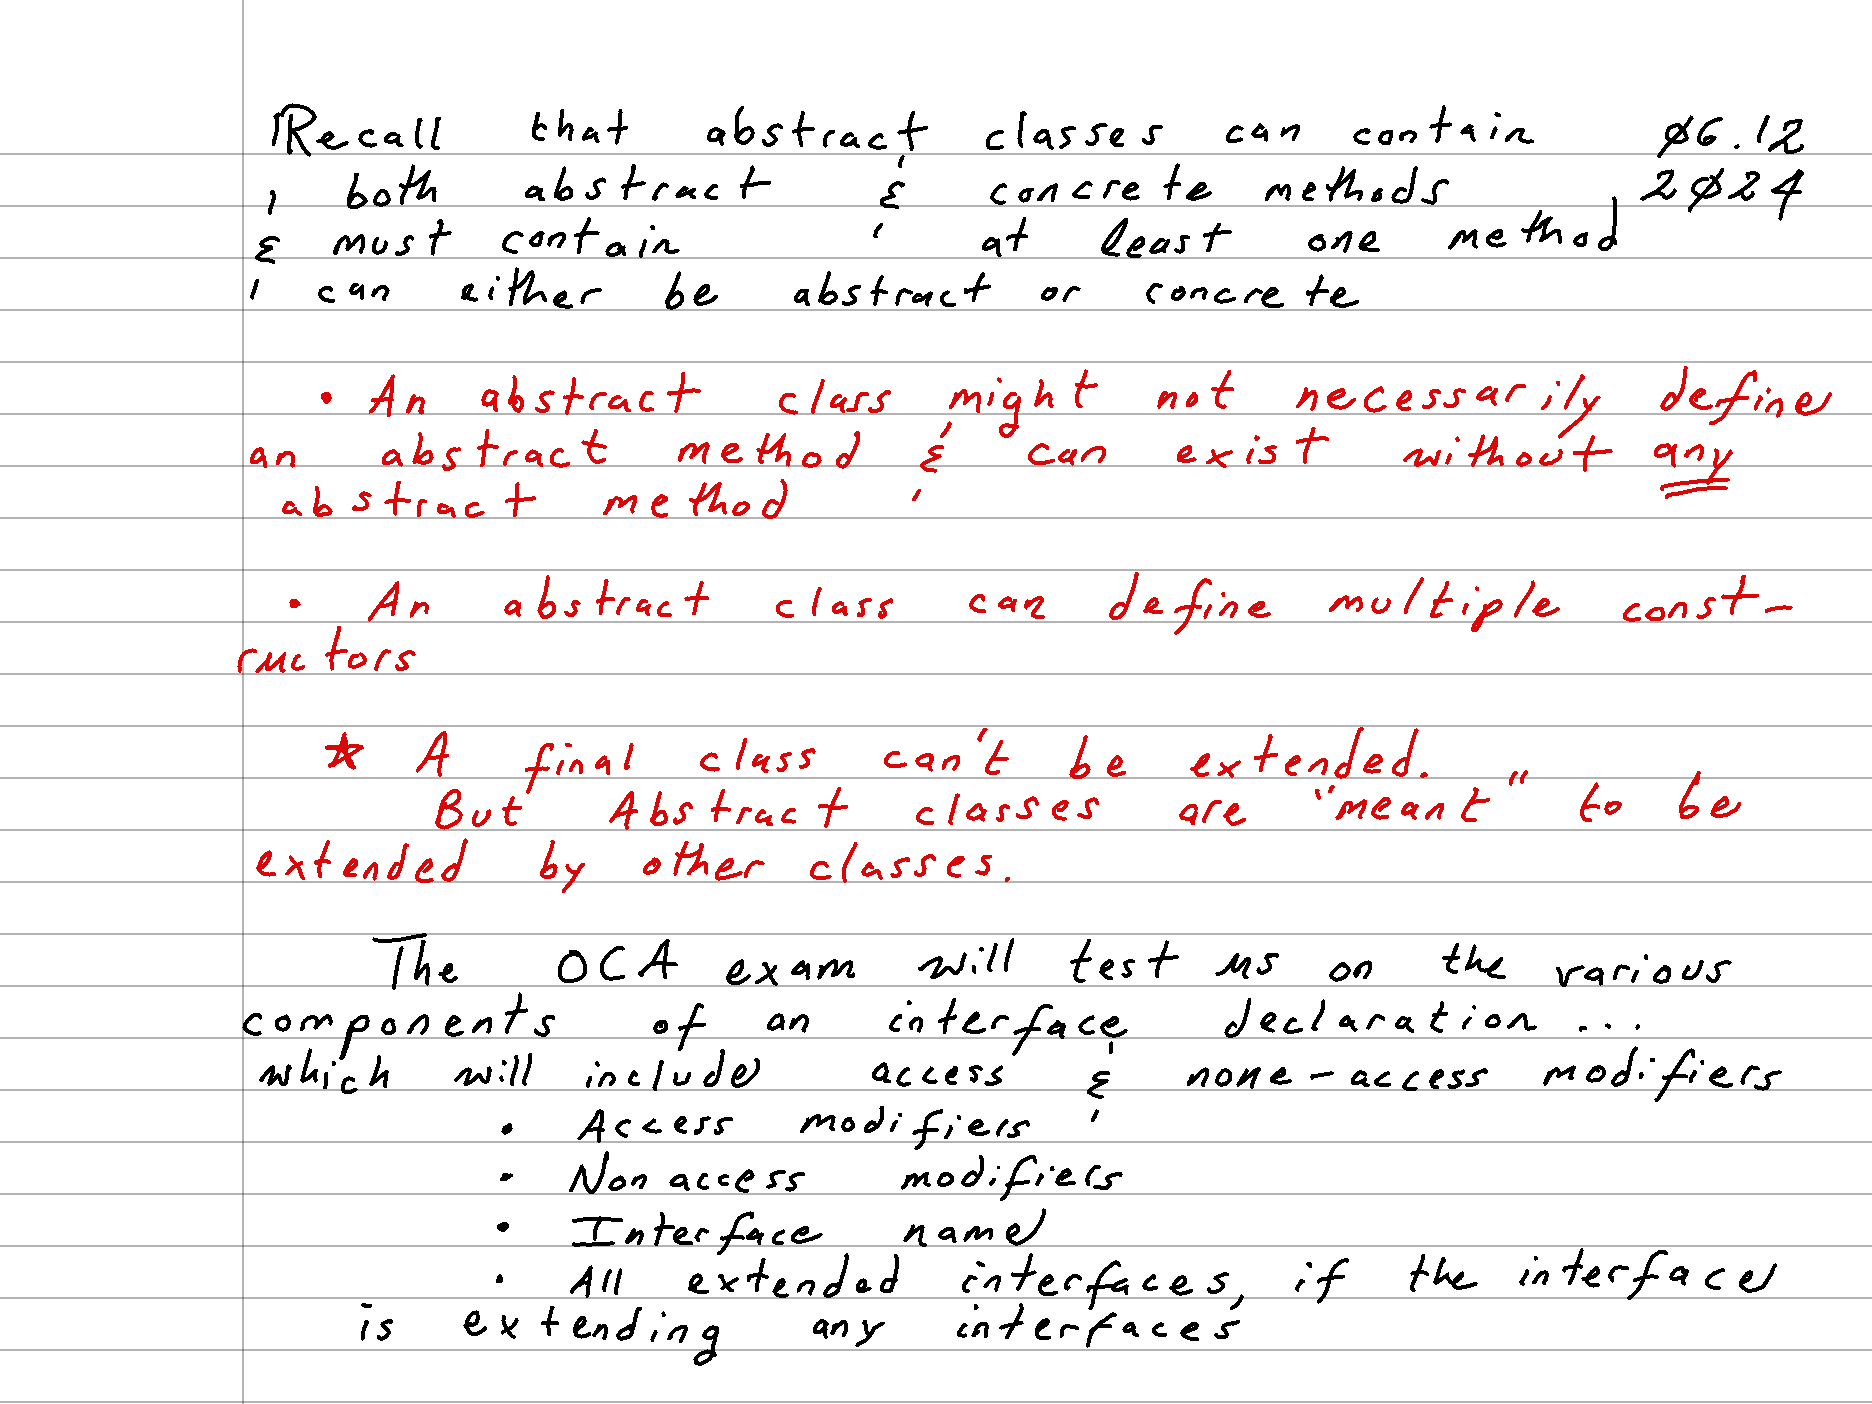 Recall that abstract classes can contain Ø6.12
both abstract & concrete methods 2Ø24
& must contain at least one method
can either be abstract or concrete
• An abstract class might not necessarily define
an abstract method & can exist without any
abstract method
• An abstract class can define multiple const-
ructors
☆ A final class can't be extended.
But Abstract classes are "meant" to be
extended by other classes.
The OCA exam will test us on the various
components of an interface declaration ...
which will include access & none-access modifiers
• Access modifiers
• Nonaccess modifiers
• Interface name
• All extended interfaces, if the interface
is extending any interfaces